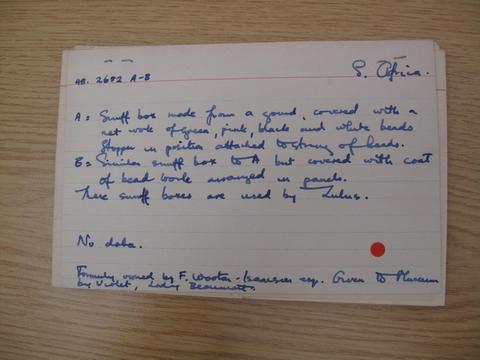 AB. 2682 A-B
S. Africa.
A = Snuff box made from a gourd, covered with a
net work of green, pink, black and white beads
Stopper in position attached to string of beads.
B = Similar snuff box to A but covered with coat
of bead work arranged in panels.
These snuff boxes are used by Zulus.
No data.
Formerly owned by F. Wootan-Isaacson esq. Given to Museum
by Violet, Lady Beaumont.